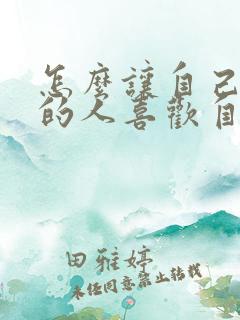 怎麼讓自己
的人喜歡自
田雅婷
未经同意禁止转载